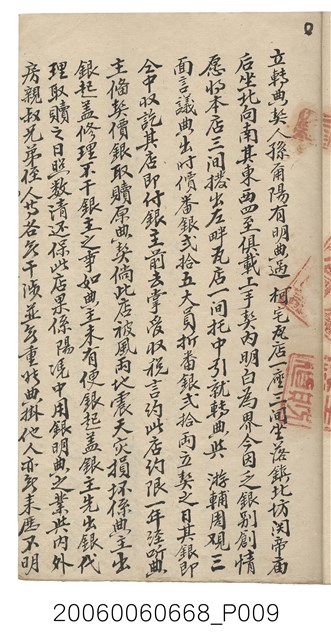 立轉典契人孫甫陽有明典過柯宅瓦店一座三間坐落鎮北坊関帝廟
后坐北向南其東西四至俱載上手契內明白為界今因乏銀別創情
愿將本店三間撥出左畔瓦店一間托中引就轉典與 游輔周观三
面言議典出時價番銀弍拾五大員折番銀弍拾両立契之日其銀即
仝中収訖其店即付銀主前去掌管収稅言約此店約限一年終听典
主俻契價銀取贖原典契倘此店被風雨地震天灾損坏係典主出
銀起盖修理不干銀主之事如典主未有便銀起盖銀主先出銀代
理取贖之日照数清还保此店果係陽凴中用銀明典之業與內外
房親叔兄弟侄人等各無干涉並無重張典掛他人亦無来歷不明
20060060668_P009